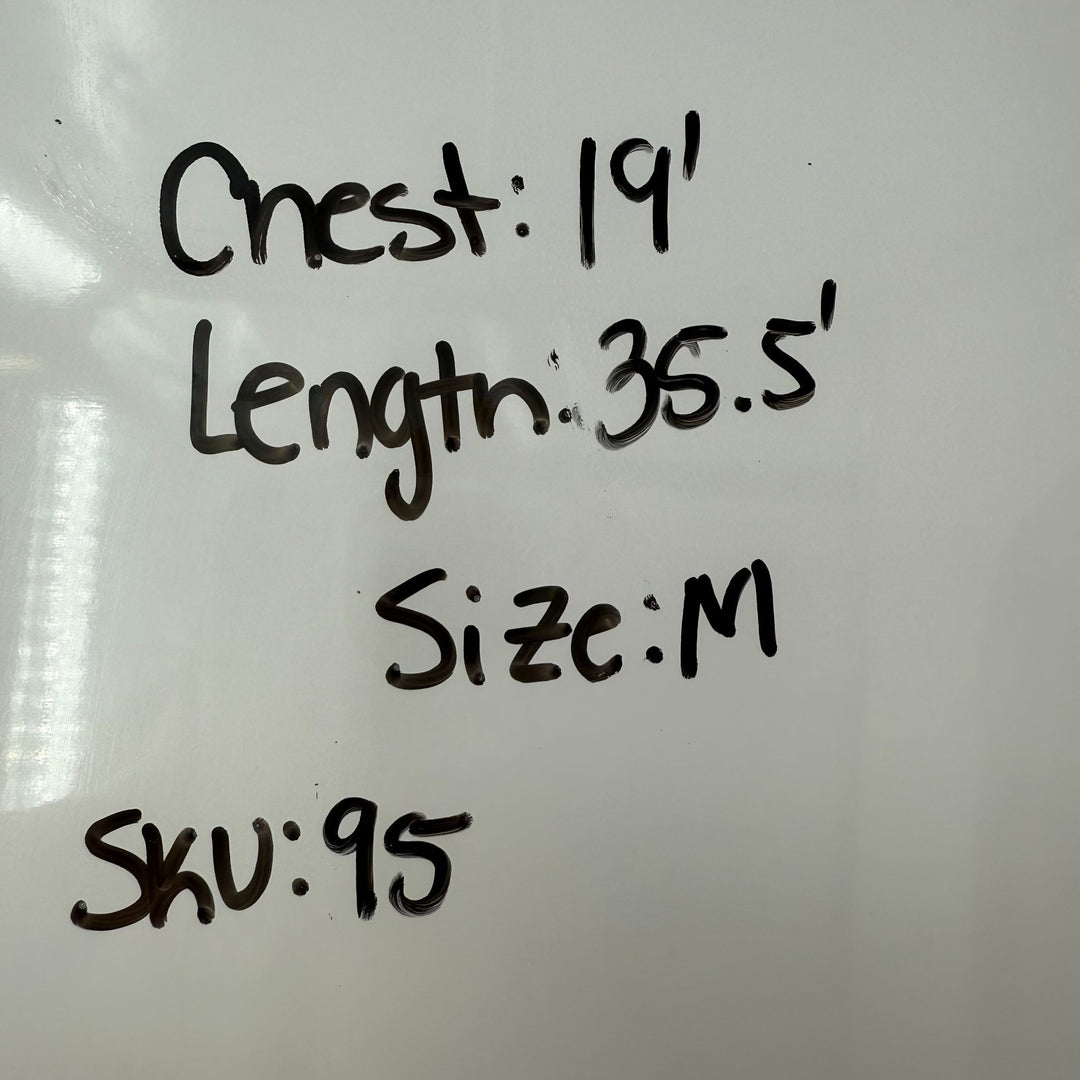 Chest: 19'
Length: 35.5'
Size: M
SKU: 95